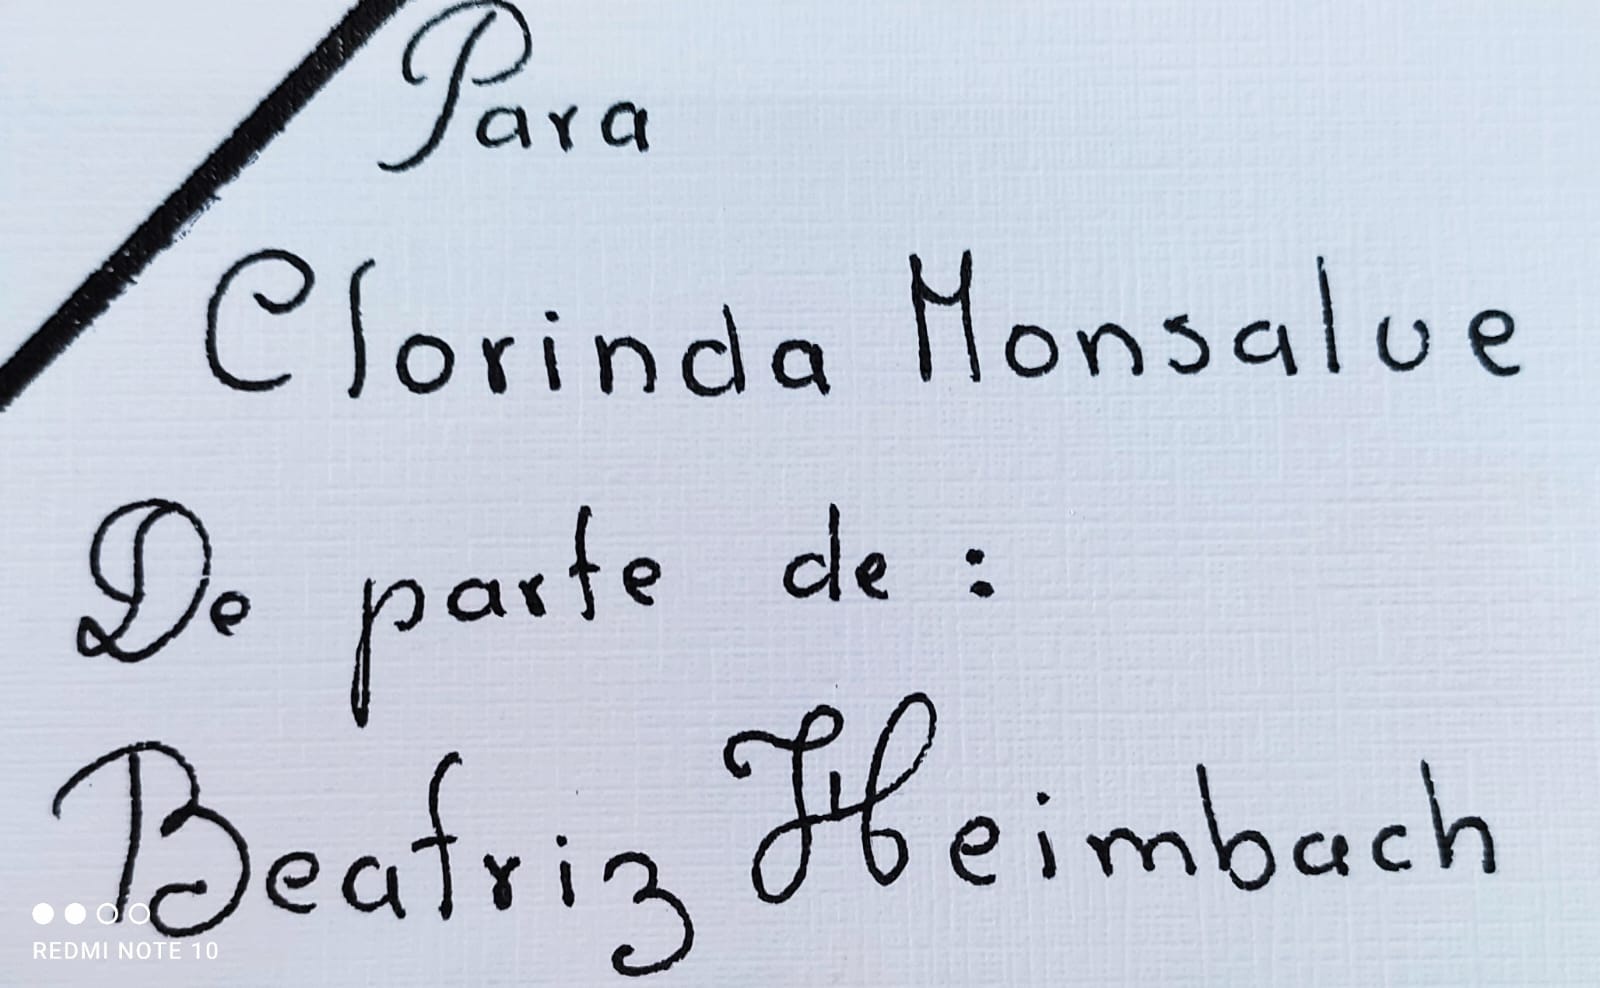 Para
Clorinda Monsalve
De parte de :
Beatriz Heimbach
REDMI NOTE 10